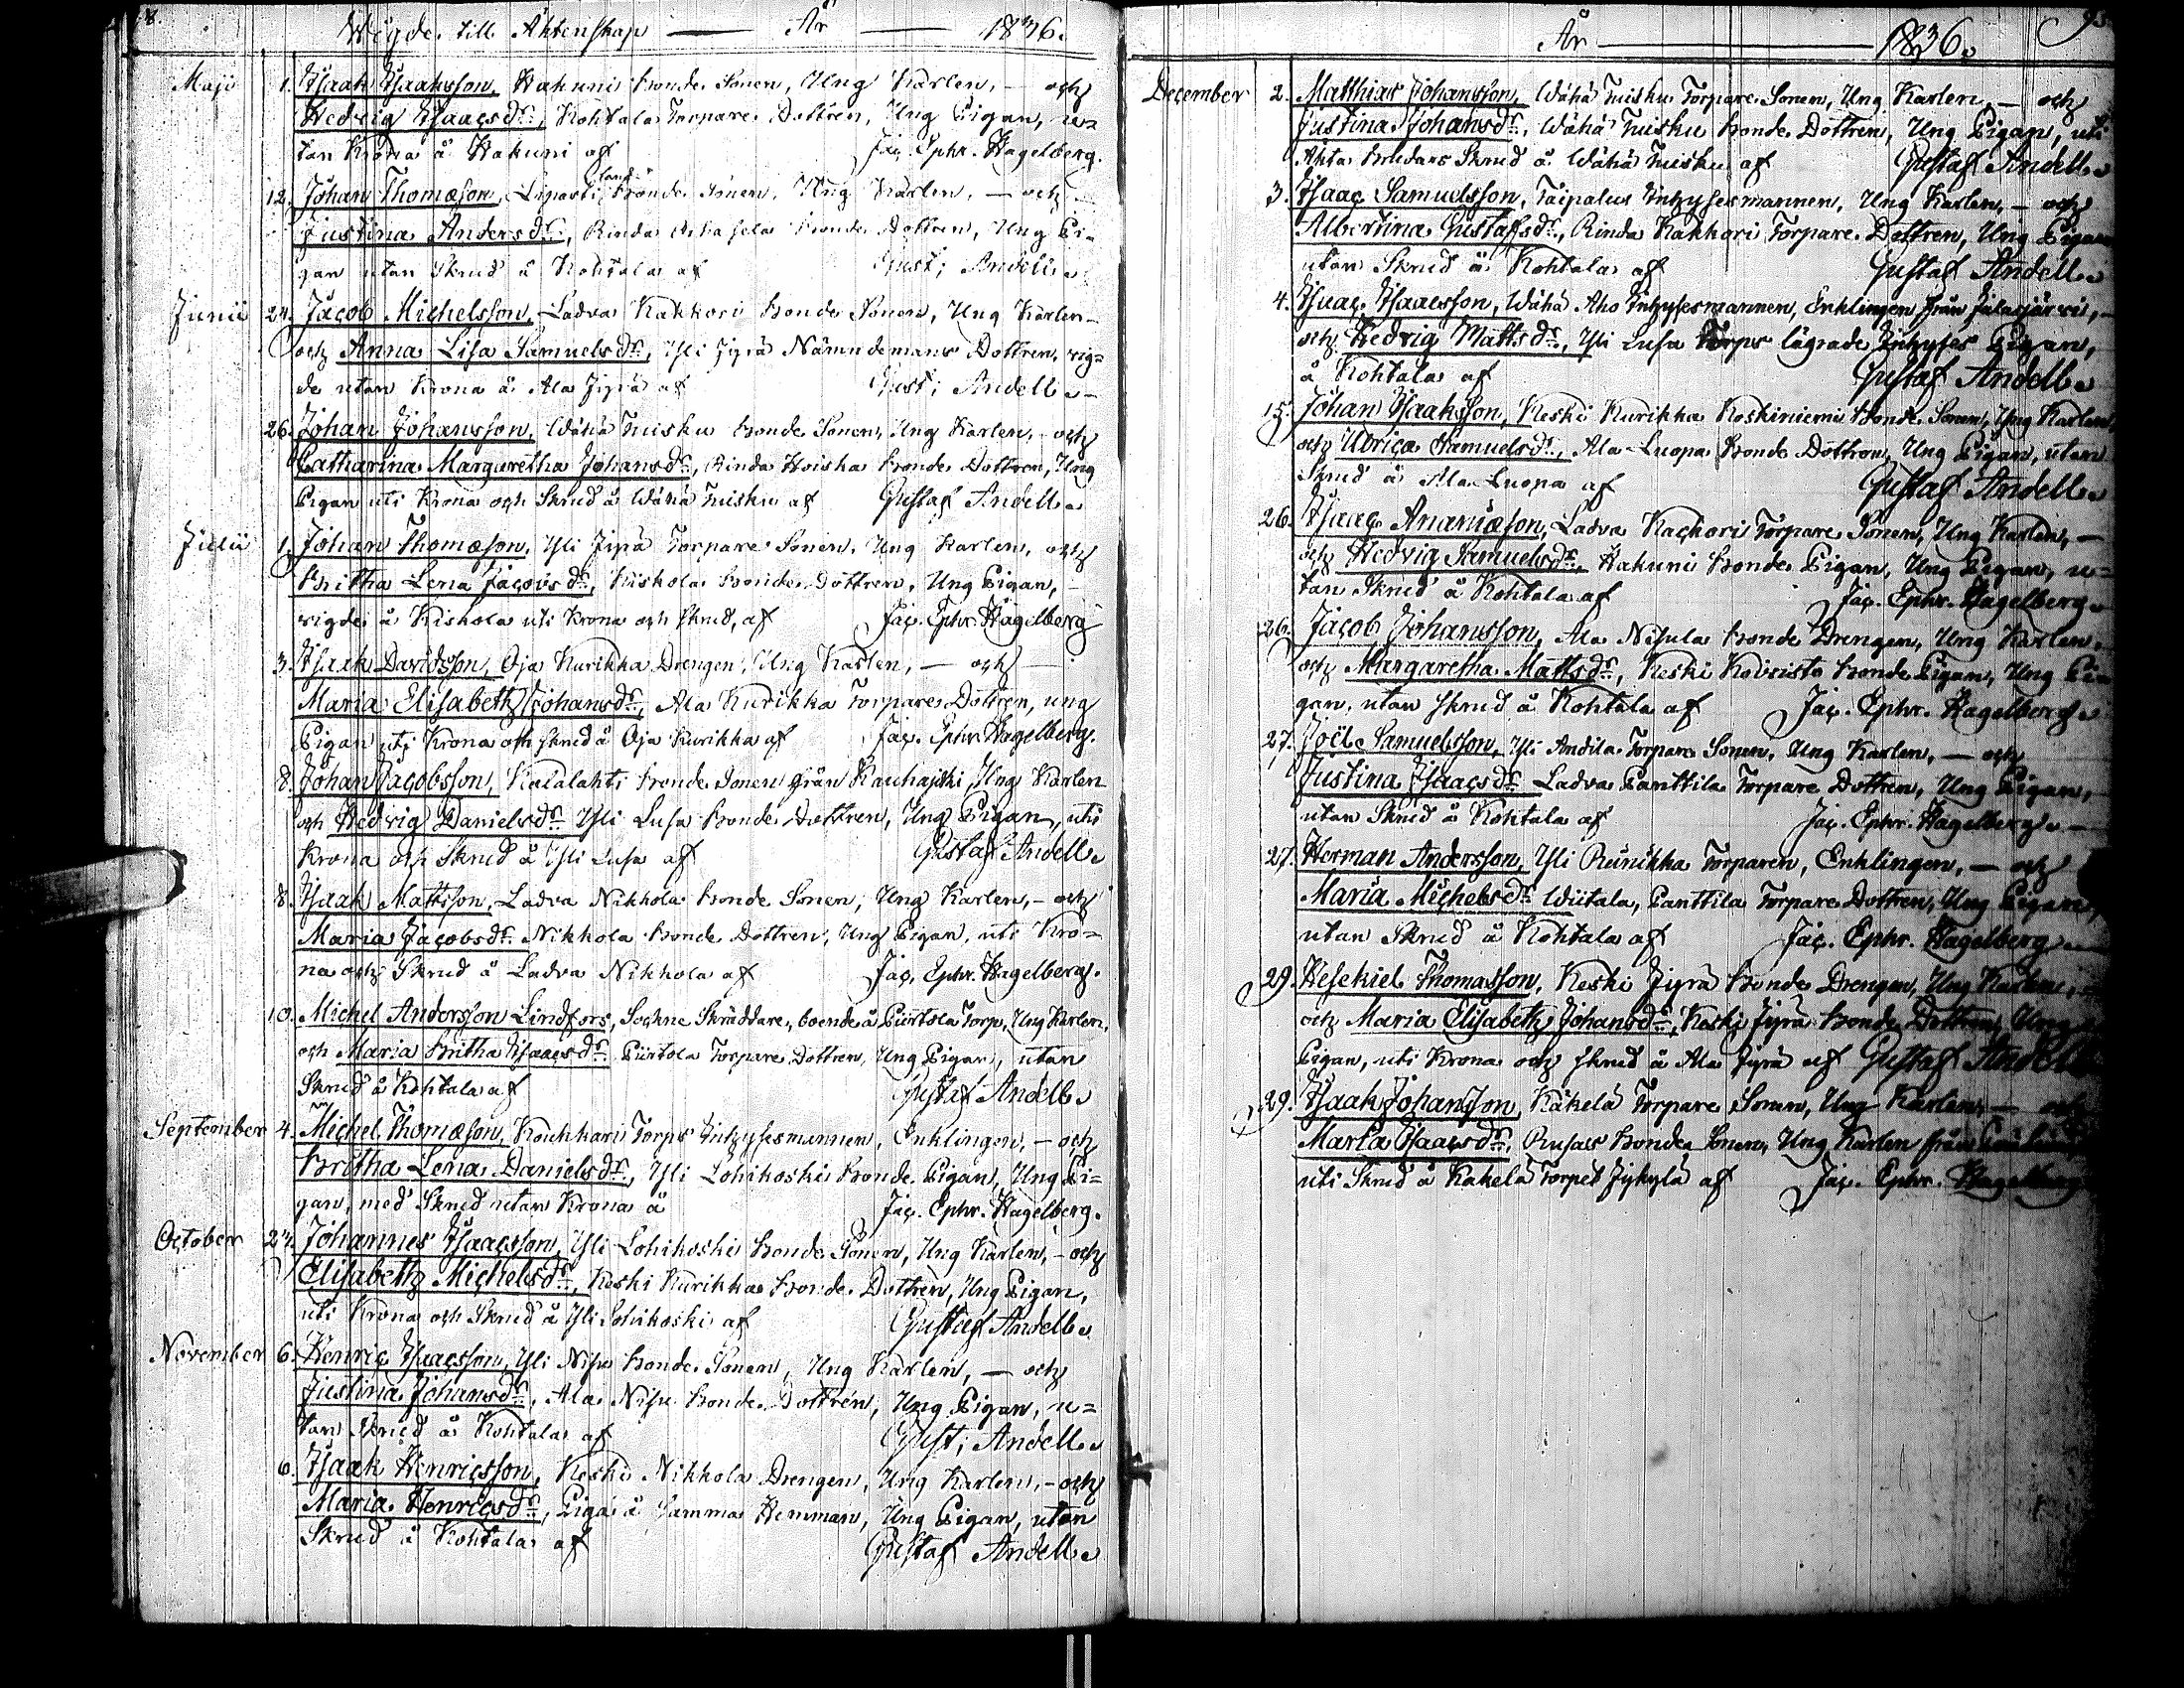 Wigde till Äktenskap — År — 1836.
Maji 1. Isaak Isaaksson, Hakuni bonde Sonen, Ung Karlen, — och
Hedvig Isaacsdr, Kohtala Torpare Dottren, Ung Pigan, u=
tan Krona å Hakuni af Jac. Ephr. Hagelberg.
12. Johan Thomæson, Bonde Sonen, Ung Karlen, — och
Justina Andersdr, Rinda bonde Dottren, Ung Pi=
gan utan Skrud å Kohtala af Gust; Andell.
Junii 24. Jacob Michelsson, Ladva Kakkori bonde Sonen, Ung Karlen
och Anna Lisa Samuelsdr, Yli Jyrä Nämndemans Dottren, vig=
de utan Krona å Ala Jyrä af Gust; Andell.
26. Johan Johansson, Wähä Tuisku bonde Sonen, Ung Karlen, och
Catharina Margaretha Johansdr, Rinda Hoiska bonde Dottren, Ung
Pigan uti Krona och Skrud å Wähä Tuisku af Gustaf Andell.
Julii 1. Johan Thomæson, Yli Jyrä Torpare Sonen, Ung Karlen, och
Britha Lena Jacobsdr, Kiskola bonde Dottren, Ung Pigan,
vigde å Kiskola uti Krona och skrud, af Jac. Ephr. Hagelberg
3. Isaak Davidsson, Oja Kurikka Drengen, Ung Karlen, — och
Maria Elisabeth Johansdr, Ala Kurikka Torpare Dottren, ung
Pigan uti Krona och skrud å Oja Kurikka af Jac. Ephr. Hagelberg.
8. Johan Jacobsson, Kalalahti bonde Sonen från Kauhajoki, Ung Karlen
och Hedvig Danielsdr Yli Lusa bonde Dottren, Ung Pigan, uti
Krona och Skrud å Yli Lusa af Gustaf Andell.
8. Isaak Mattsson, Ladva Nikkola bonde Sonen, Ung Karlen, — och
Maria Jacobsdr Nikkola bonde Dottren, Ung Pigan, uti Kro=
na och Skrud å Ladva Nikkola af Jac. Ephr. Hagelberg.
10. Michel Andersson Lindfors, Sockne Skräddare, boende å Piirtola Torp, Ung Karlen,
och Maria Britha Isaacsdr Piirtola Torpare Dottren, Ung Pigan, utan
Skrud å Kohtala af Gustaf Andell.
September 4. Michel Thomæson, Koukkari Torps Inhysesmannen, Enklingen, — och
Britha Lena Danielsdr, Yli Lohikoski bonde Pigan, Ung Pi=
gan, med Skrud utan Krona å Jac. Ephr. Hagelberg.
October 24. Johannes Isaacsson, Yli Lohikoski bonde Sonen, Ung Karlen, — och
Elisabeth Michelsdr, Keski Kurikka bonde Dottren, Ung Pigan,
uti Krona och Skrud å Yli Lohikoski af Gustaf Andell.
November 6. Henric Isaacsson, Yli Nisu bonde Sonen, Ung Karlen, — och
Justina Johansdr, Ala Nisu bonde Dottren, Ung Pigan, u=
tan Skrud å Kohtala af Gust; Andell.
6. Isaak Henricsson, Keski Nikkola Drengen, Ung Karlen, — och
Maria Henricsdr, Piga å samma Hemman, Ung Pigan, utan
Skrud å Kohtala af Gustaf Andell.
År — 1836.
December 2. Matthias Johansson, Wähä Tuisku Torpare Sonen, Ung Karlen, — och
Justina Johansdr, Wähä Tuisku bonde Dottren, Ung Pigan, uti
Äkta Brudars Skrud å Wähä Tuisku af Gustaf Andell.
3. Isaac Samuelsson, Taipalus Inhysesmannen, Ung Karlen, — och
Albertina Gustafsdr, Rinda Kakkori Torpare Dottren, Ung Pigan
utan Skrud å Kohtala af Gustaf Andell.
4. Isaac Isaacsson, Wähä Aho Inhysesmannen, Enklingen från Jalasjärvi, —
och Hedvig Mattsdr, Yli Lusa Torps lägrade Inhyses Pigan,
å Kohtala af Gustaf Andell.
15. Johan Isaaksson, Keski Kurikka Koskiniemi bonde Sonen, Ung Karlen,
och Ulrica Samuelsdr, Ala Luopa bonde Dottren, Ung Pigan, utan
Skrud å Ala Luopa af Gustaf Andell.
26. Isaac Ananiæson, Ladva Kackori Torpare Sonen, Ung Karlen, —
och Hedvig Samuelsdr, Hakuni bonde Pigan, Ung Pigan, u=
tan Skrud å Kohtala af Jac. Ephr. Hagelberg.
26. Jacob Johansson, Ala Nisula bonde Drengen, Ung Karlen,
och Margaretha Mattsdr, Keski Koivisto bonde Pigan, Ung Pi=
gan, utan skrud å Kohtala af Jac. Ephr. Hagelberg.
27. Joël Samuelsson, Yli Andila Torpare Sonen, Ung Karlen, — och
Justina Isaacsdr Ladva Panttila Torpare Dottren, Ung Pigan,
utan Skrud å Kohtala af Jac. Ephr. Hagelberg. —
27. Herman Andersson, Yli Torparen, Enklingen, — och
Maria Michelsdr Wiitala, Panttila Torpare Dottren, Ung Pigan,
utan Skrud å Kohtala af Jac. Ephr. Hagelberg
29. Hesekiel Thomasson, Keski Jyrä bonde Drengen, Ung Karlen,
och Maria Elisabeth Johansdr, Keski Jyrä bonde Dottren, Ung
Pigan, uti Krona och skrud å Ala Jyrä af Gustaf Andell
29. Isaak Johansson, Käkelä Torpare Sonen, Ung Karlen, — och
Maria Isaacsdr, Rusas bonde Sonen, Ung Karlen från
uti Skrud å Käkelä Torpet Jyhylä af Jac. Ephr. Hagelberg